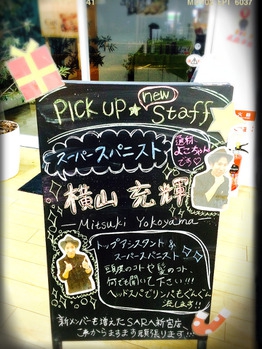 PICK UP★new Staff
通称
よこちゃん
です♡
スーパースパニスト
横山 充輝
Mitsuki Yokoyama
トップアシスタント&
スーパースパニスト
頭皮のコトや髪のコト、
何でも聞いて下さい!!!
ヘッドスパでリンパもぐんぐん
流します!!
新メンバーも増えたSARA新宮店
これからますます頑張ります!!